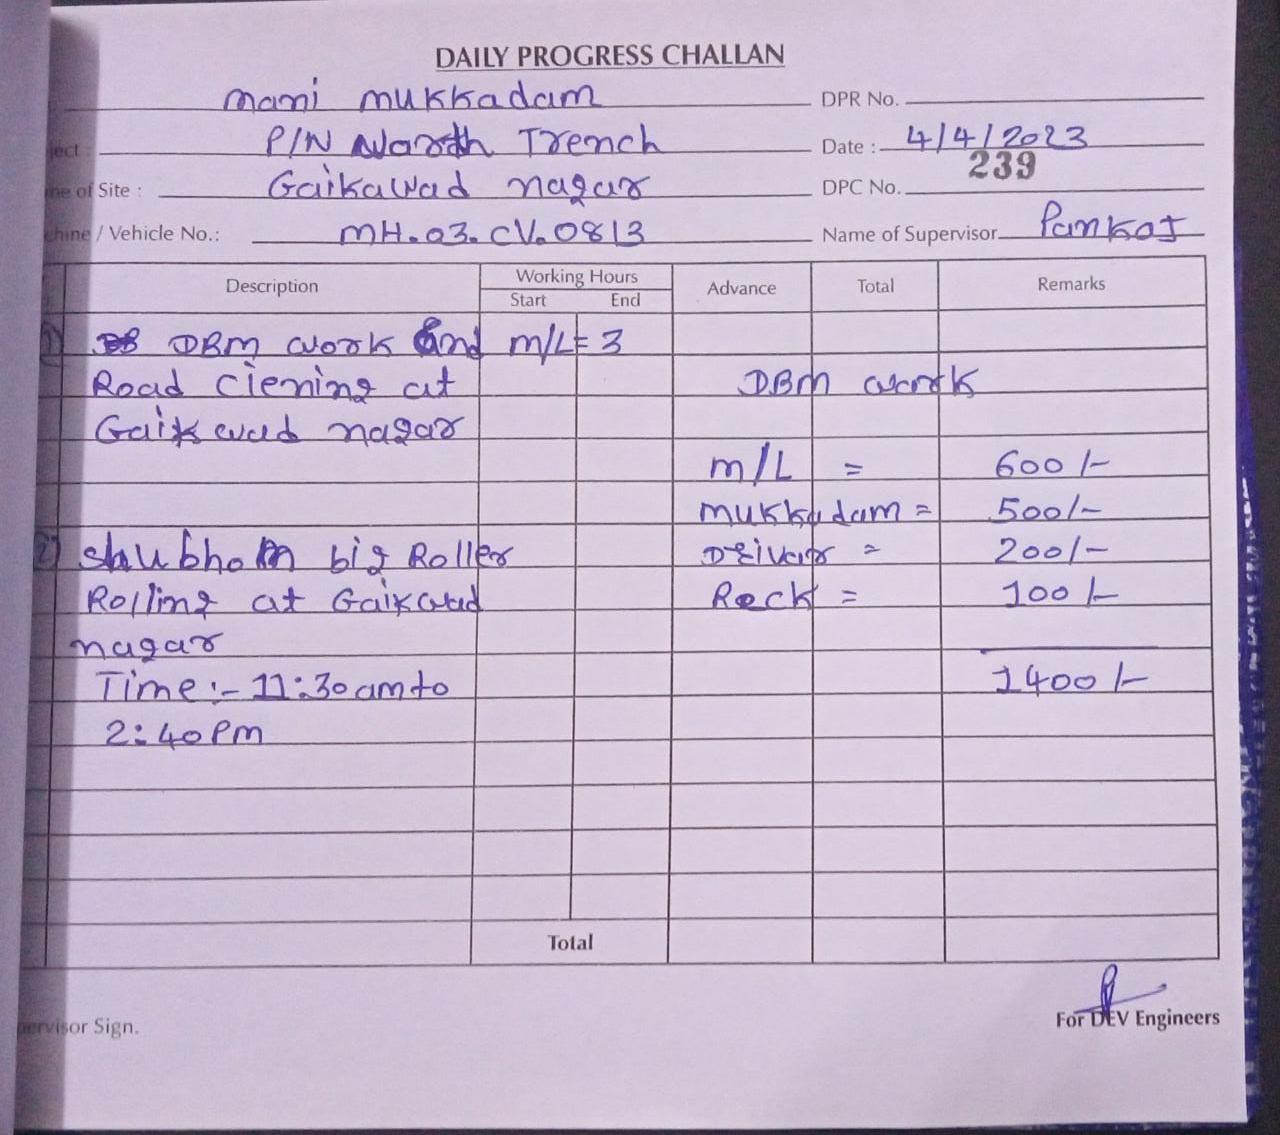 DAILY PROGRESS CHALLAN
mani mukkadam DPR No.
ject : P/N North Trench Date :- 4/4/2023
me of Site : Gaikawad nagar DPC No. 239
chine / Vehicle No.: MH.03.CV.0813 Name of Supervisor Pankaj
Description Working Hours Advance Total Remarks
Start End
1) DBM work and m/L = 3
Road clening at DBM work
Gaikwad nagar
m/L = 600/-
mukkadam = 500/-
2) Shubham big Roller Drivar = 200/-
Rolling at Gaikwad Rock = 100/-
nagar
Time :- 11:30am to 1400/-
2:40 Pm
Total
ervisor Sign. For DEV Engineers